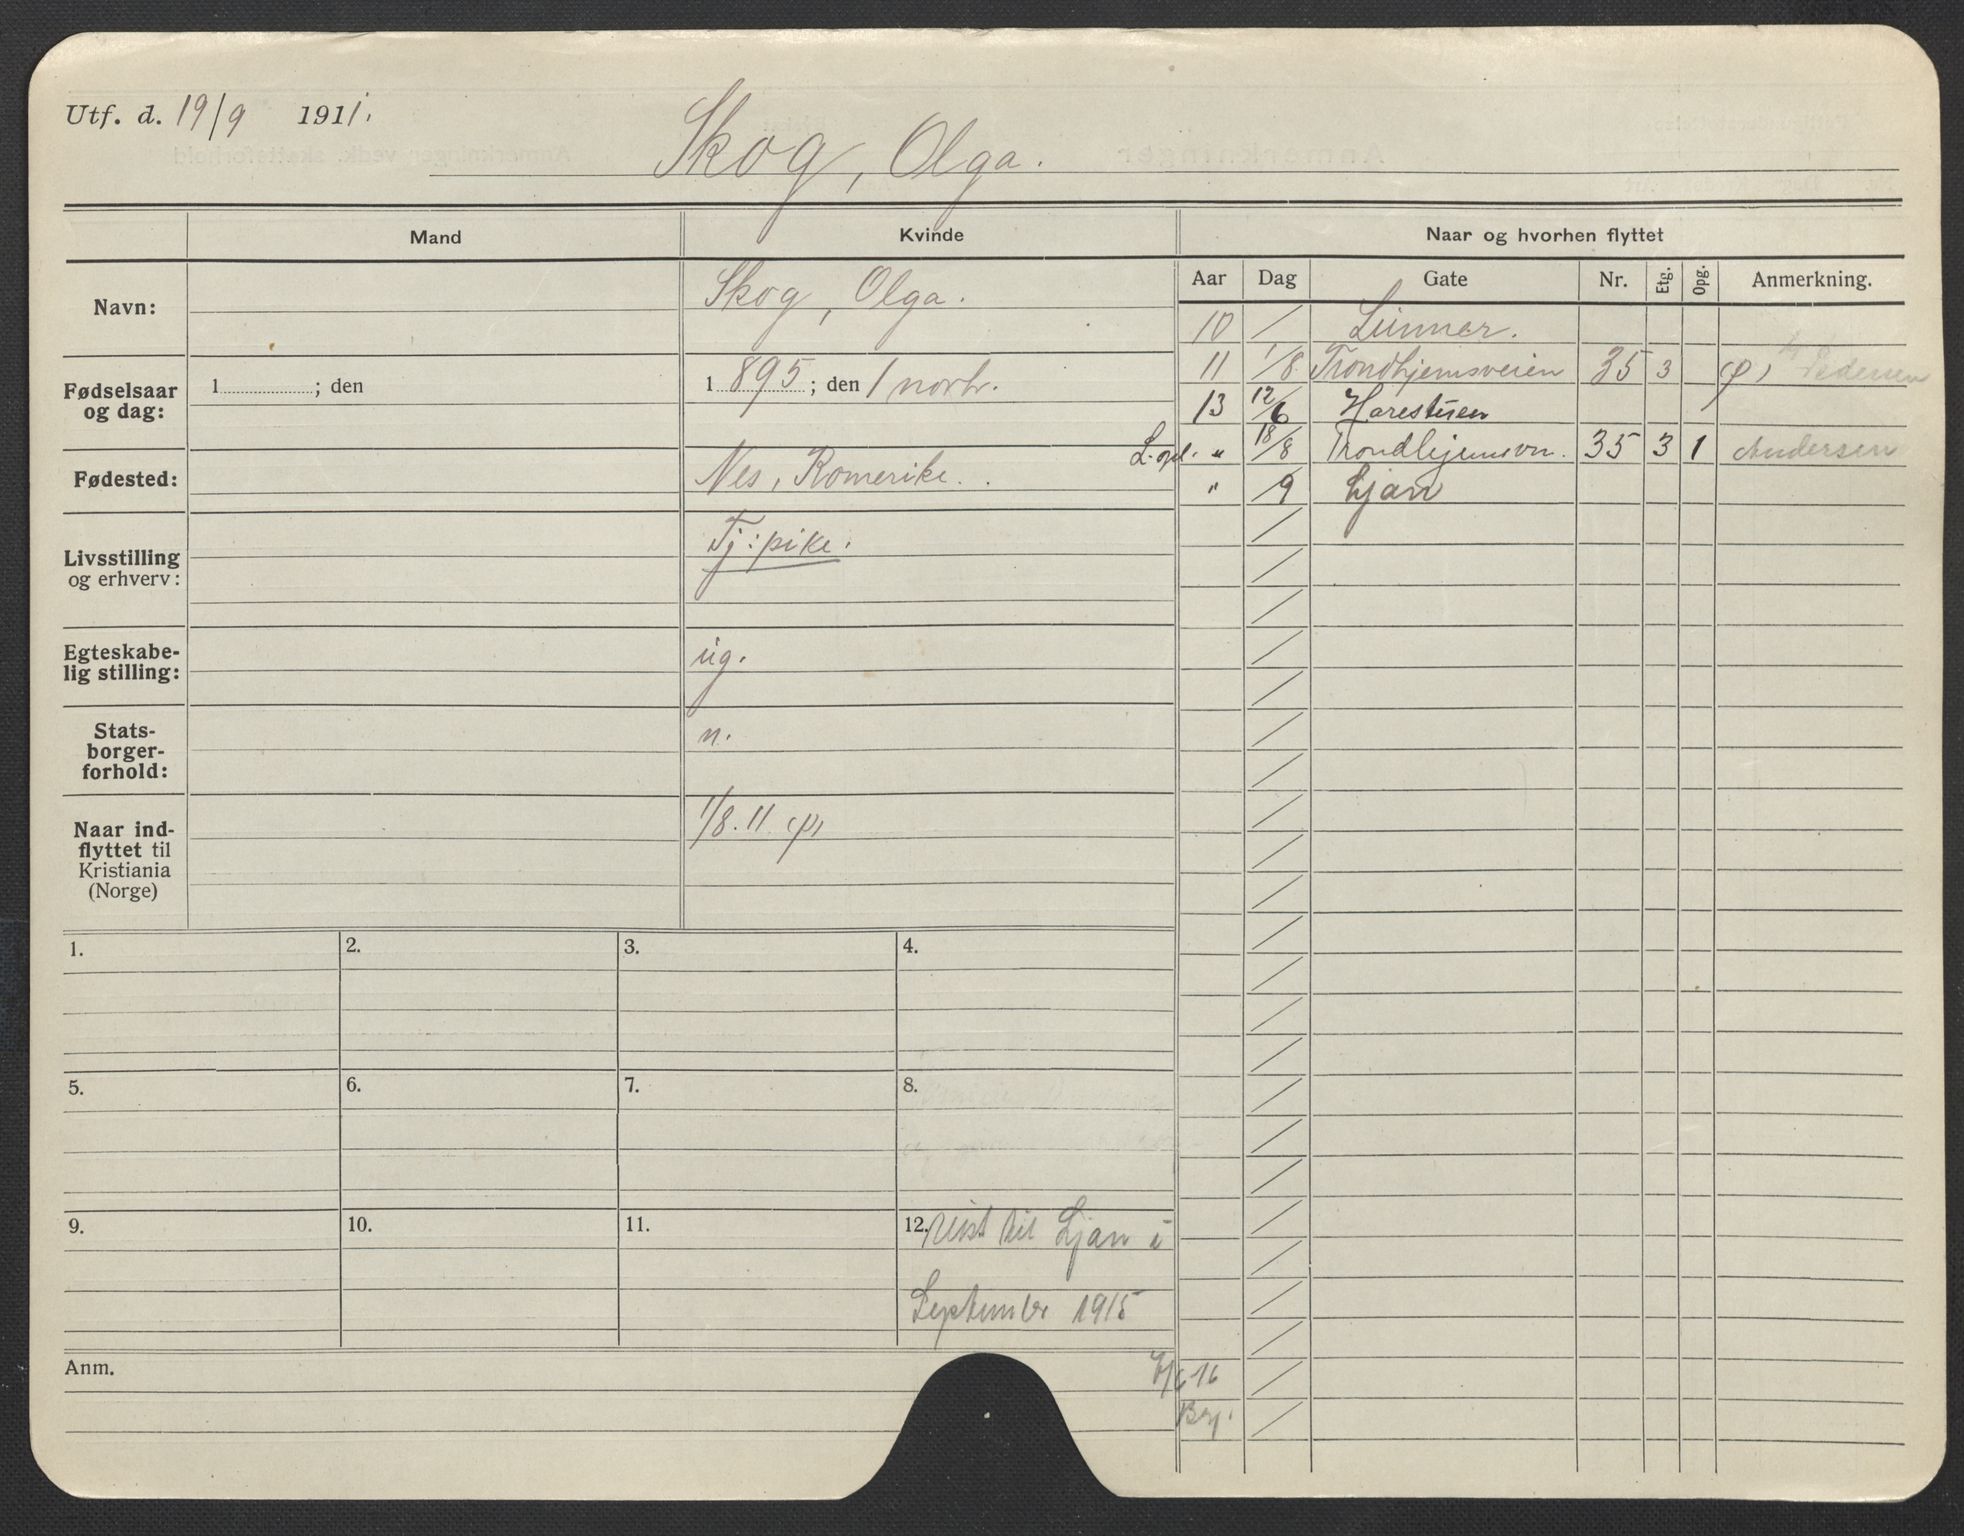 Utf. d. 19/9 1911.
Skog, Olga.
Mand
Kvinde
Naar og hvorhen flyttet
Aar Dag Gate Nr. Etg. Opg. Anmerkning.
Navn:
Skog, Olga.
Fødselsaar og dag:
1 ; den
1 895 ; den 1 novbr.
Fødested:
Nes, Romerike.
Livsstilling
og erhverv:
Tj: pike.
Egteskabe-
lig stilling:
ug.
Stats-
borger-
forhold:
n.
Naar ind-
flyttet til
Kristiania
(Norge)
1/8. 11
10 / Lunner.
11 1/8 Trondhjemsveien 35 3 Pedersen
13 12/6 Harestuen
L. opl. " 18/8 Trondhjemsvn. 35 3 1 Andersen
" /9 Ljan
1. 2. 3. 4.
5. 6. 7. 8.
9. 10. 11. 12. reist til Ljan i
September 1915
Anm.
16